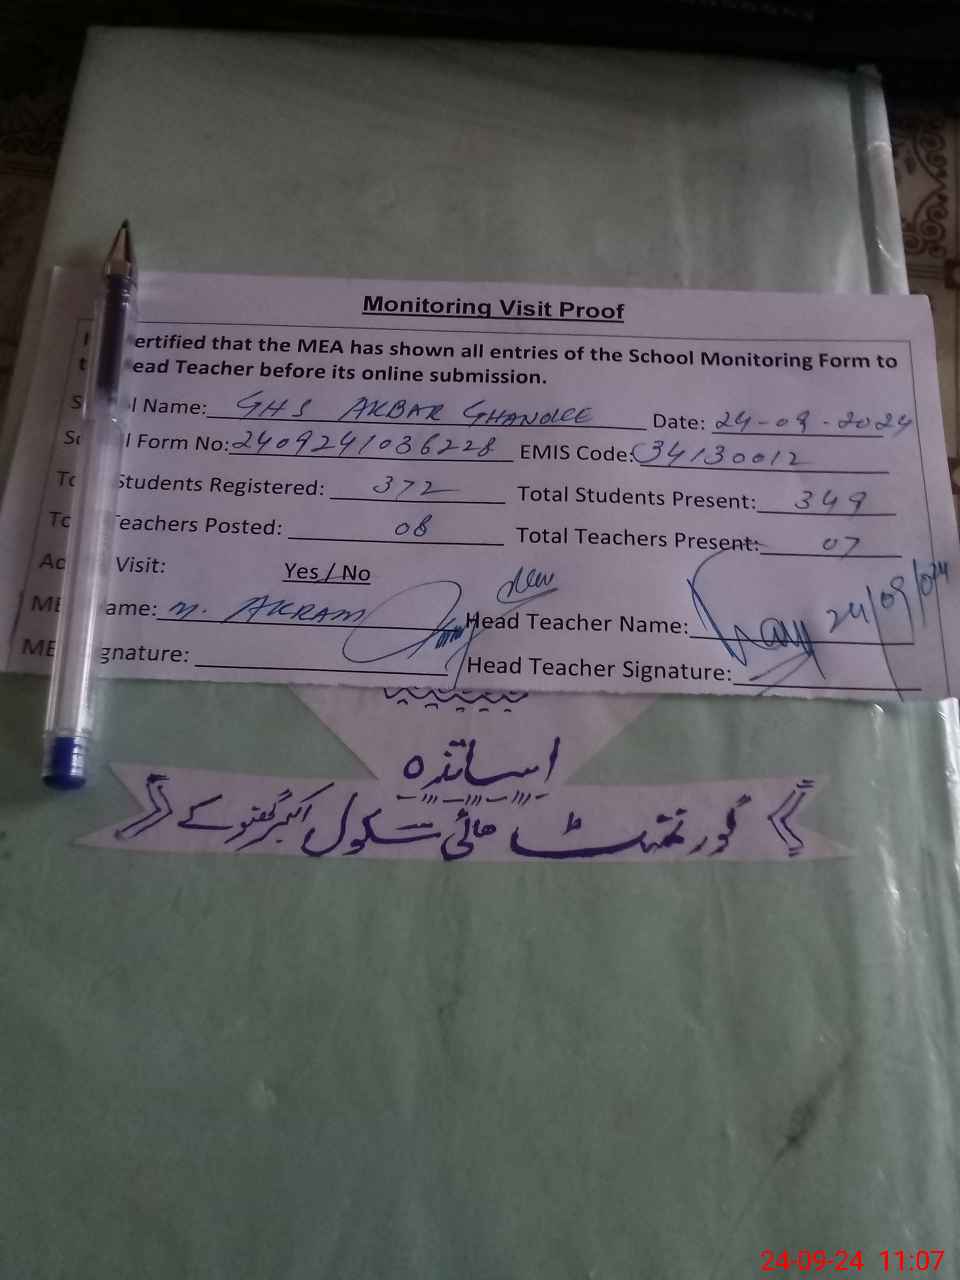 Monitoring Visit Proof
ertified that the MEA has shown all entries of the School Monitoring Form to
ead Teacher before its online submission.
S l Name: GHS AKBAR GHANOKE Date: 24-09-2024
Sc l Form No: 2409241036228 EMIS Code: 34130012
To Students Registered: 372 Total Students Present: 349
To Teachers Posted: 08 Total Teachers Present: 07
Ad Visit: Yes / No
ME ame: M. AKRAM Head Teacher Name: 24/09/024
ME gnature: Head Teacher Signature:
اساتذہ
گورنمنٹ ہائی سکول اکبر گھنوکے
24-09-24 11:07